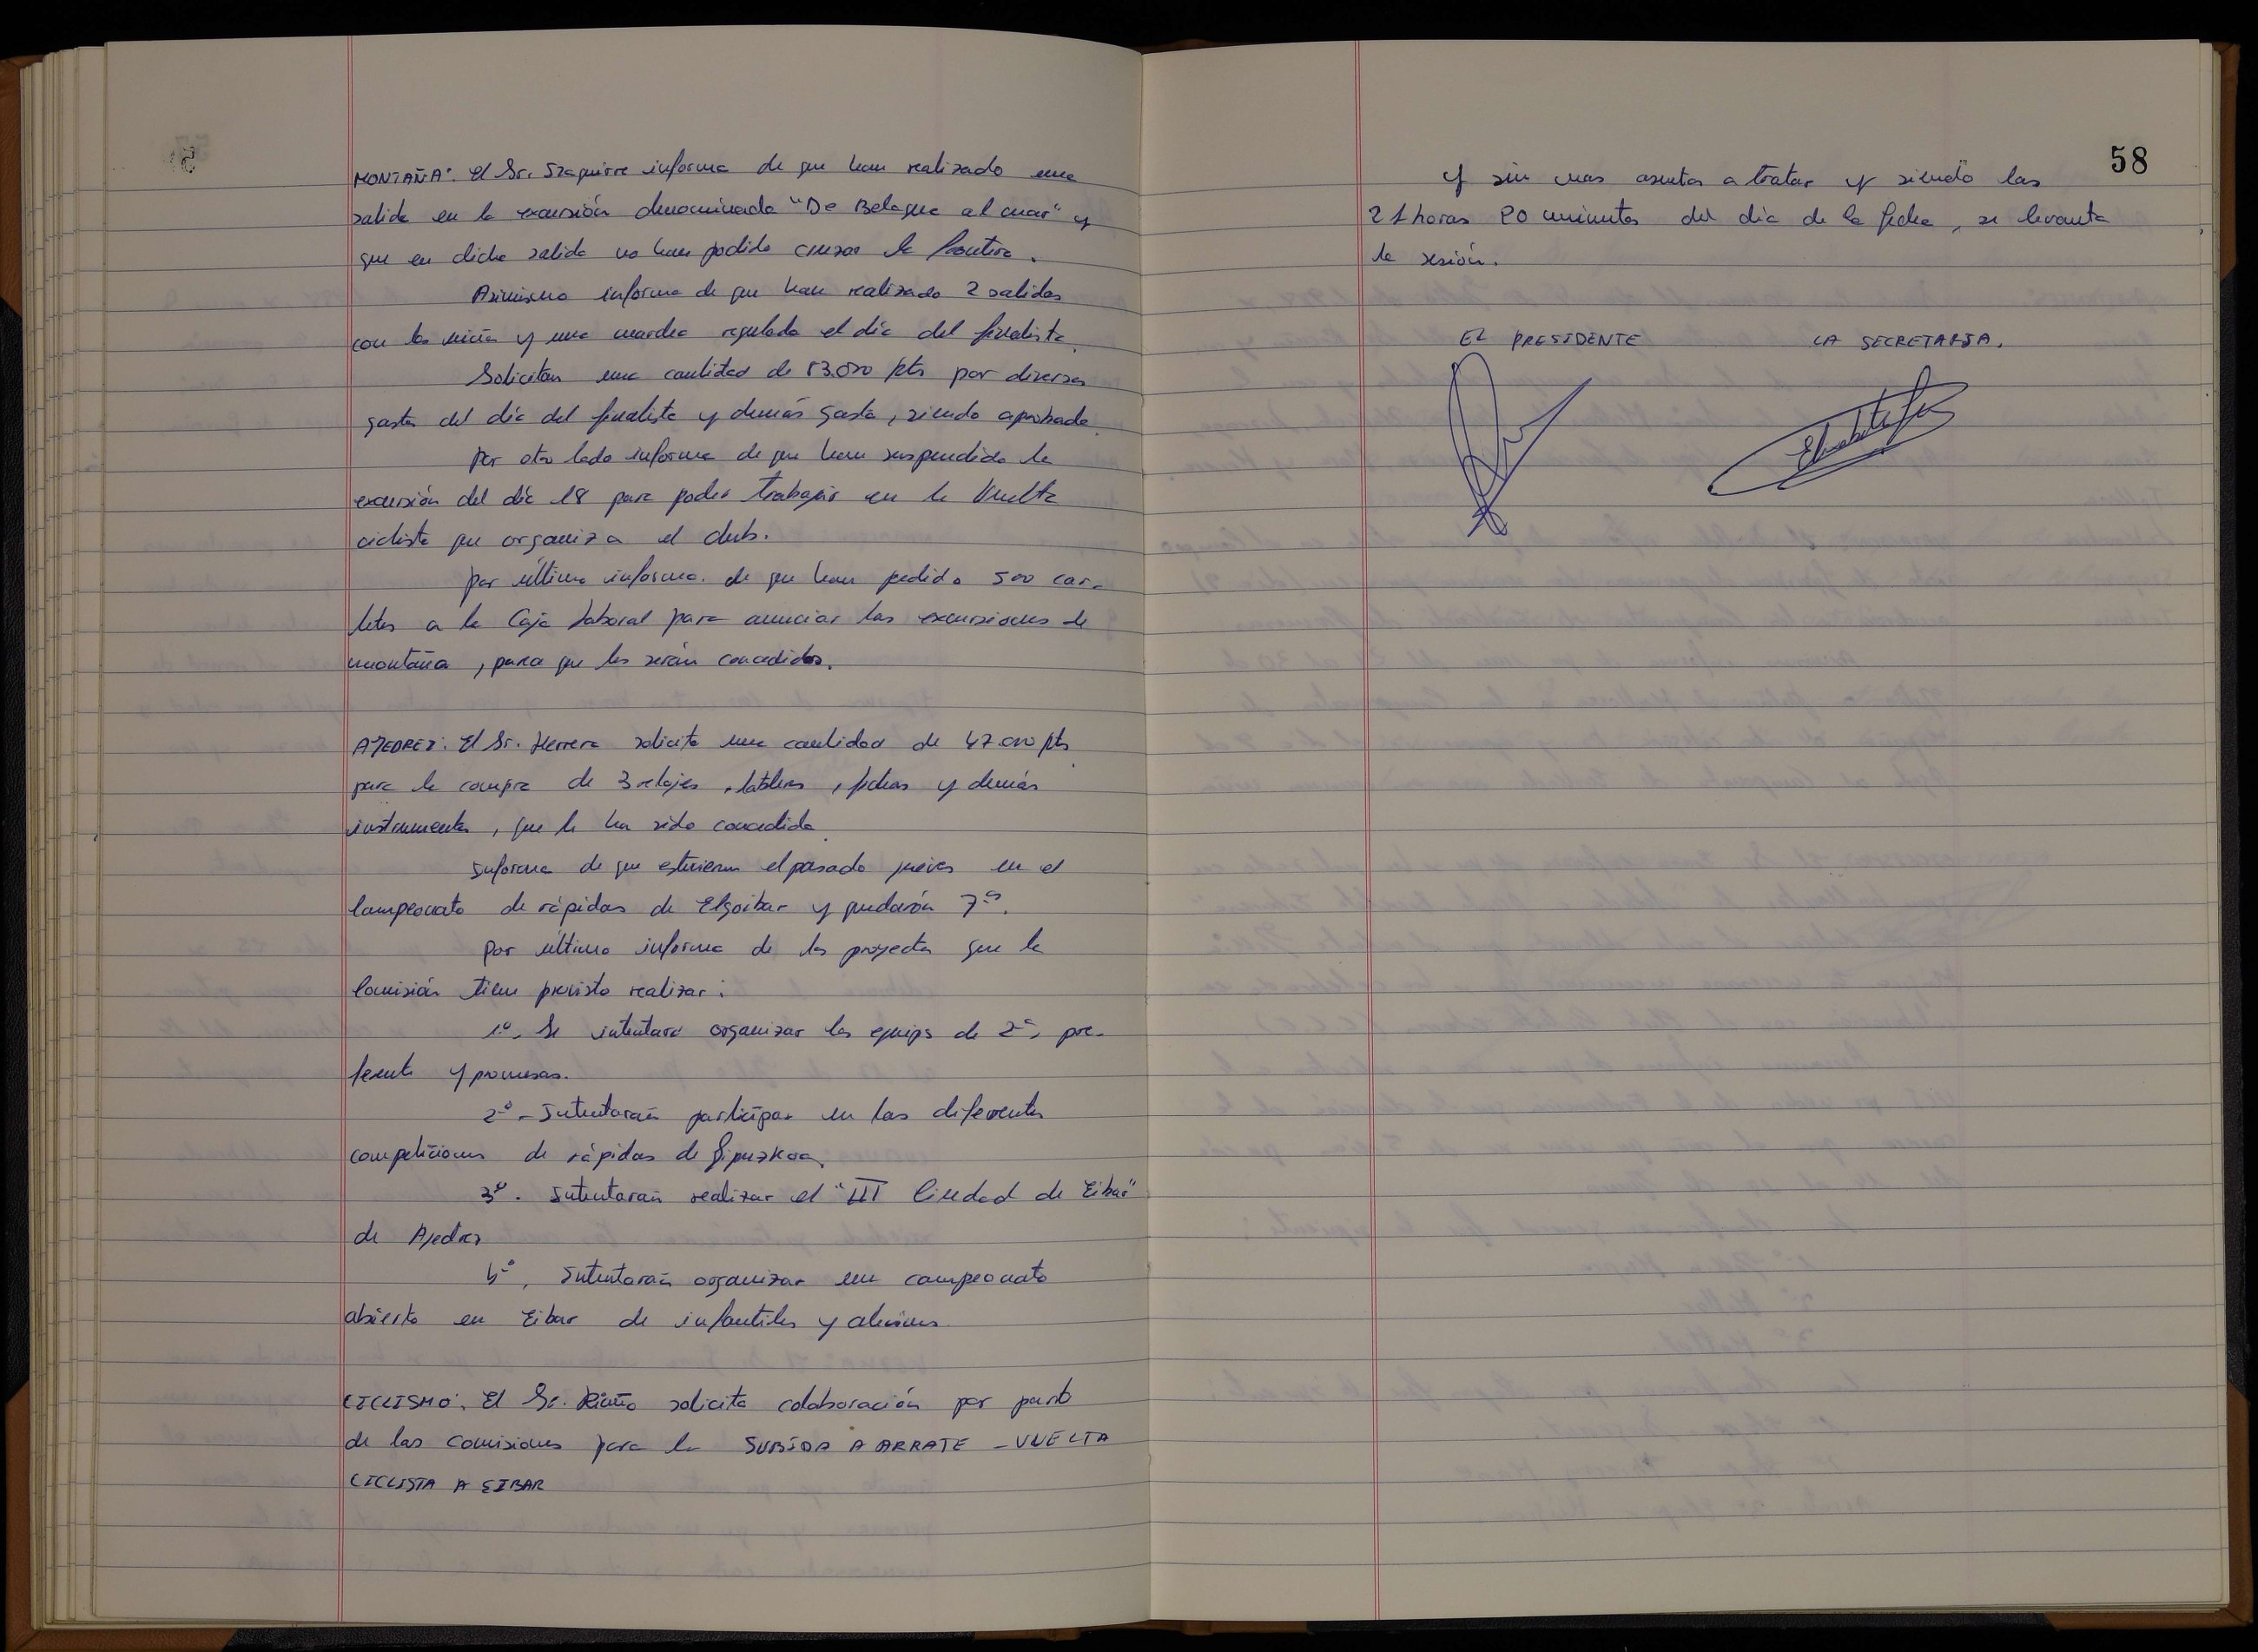 MONTAÑA: El Sr. Izaguirre informa de que han realizado una
salida en la excursión denominada "De Belagua al mar" y
que en dicha salida no han podido cruzar la frontera.
Asimismo informa de que han realizado 2 salidas
con los niños y una marcha regulada el día del finalista.
Solicitan una cantidad de 53.000 pts por diversos
gastos del día del finalista y demás gastos, siendo aprobada.
Por otro lado informa de que han suspendido la
excursión del día 18 para poder trabajar en la Vuelta
ciclista que organiza el club.
Por último informa de que han pedido 500 car-
teles a la Caja Laboral para anunciar las excursiones de
montaña, para que les serán concedidos.
AJEDREZ: El Sr. Herrera solicita una cantidad de 47.000 pts
para la compra de 3 relojes, tableros, fichas y demás
instrumentos, que le ha sido concedida
Informa de que estuvieron el pasado jueves en el
Campeonato de rápidas de Elgoibar y quedarón 7os.
Por último informa de los proyectos que la
Comisión tiene previsto realizar:
1º. Se intentará organizar los equips de 2ª, pre-
ferente y promesas.
2º - Intentarán participar en las diferentes
competiciones de rápidas de Gipuzkoa.
3º. Intentarán realizar el "III Ciudad de Eibar"
de Ajedrez
4º. Intentarán organizar un campeonato
abierto en Eibar de infantiles y alevines
CICLISMO: El Sr. Riaño solicita colaboración por parte
de las comisiones para la SUBIDA A ARRATE - VUELTA
CICLISTA A EIBAR
58
Y sin mas asuntos a tratar y siendo las
21 horas 20 minutos del día de la fecha, se levanta
la sesión.
EL PRESIDENTE LA SECRETARIA.